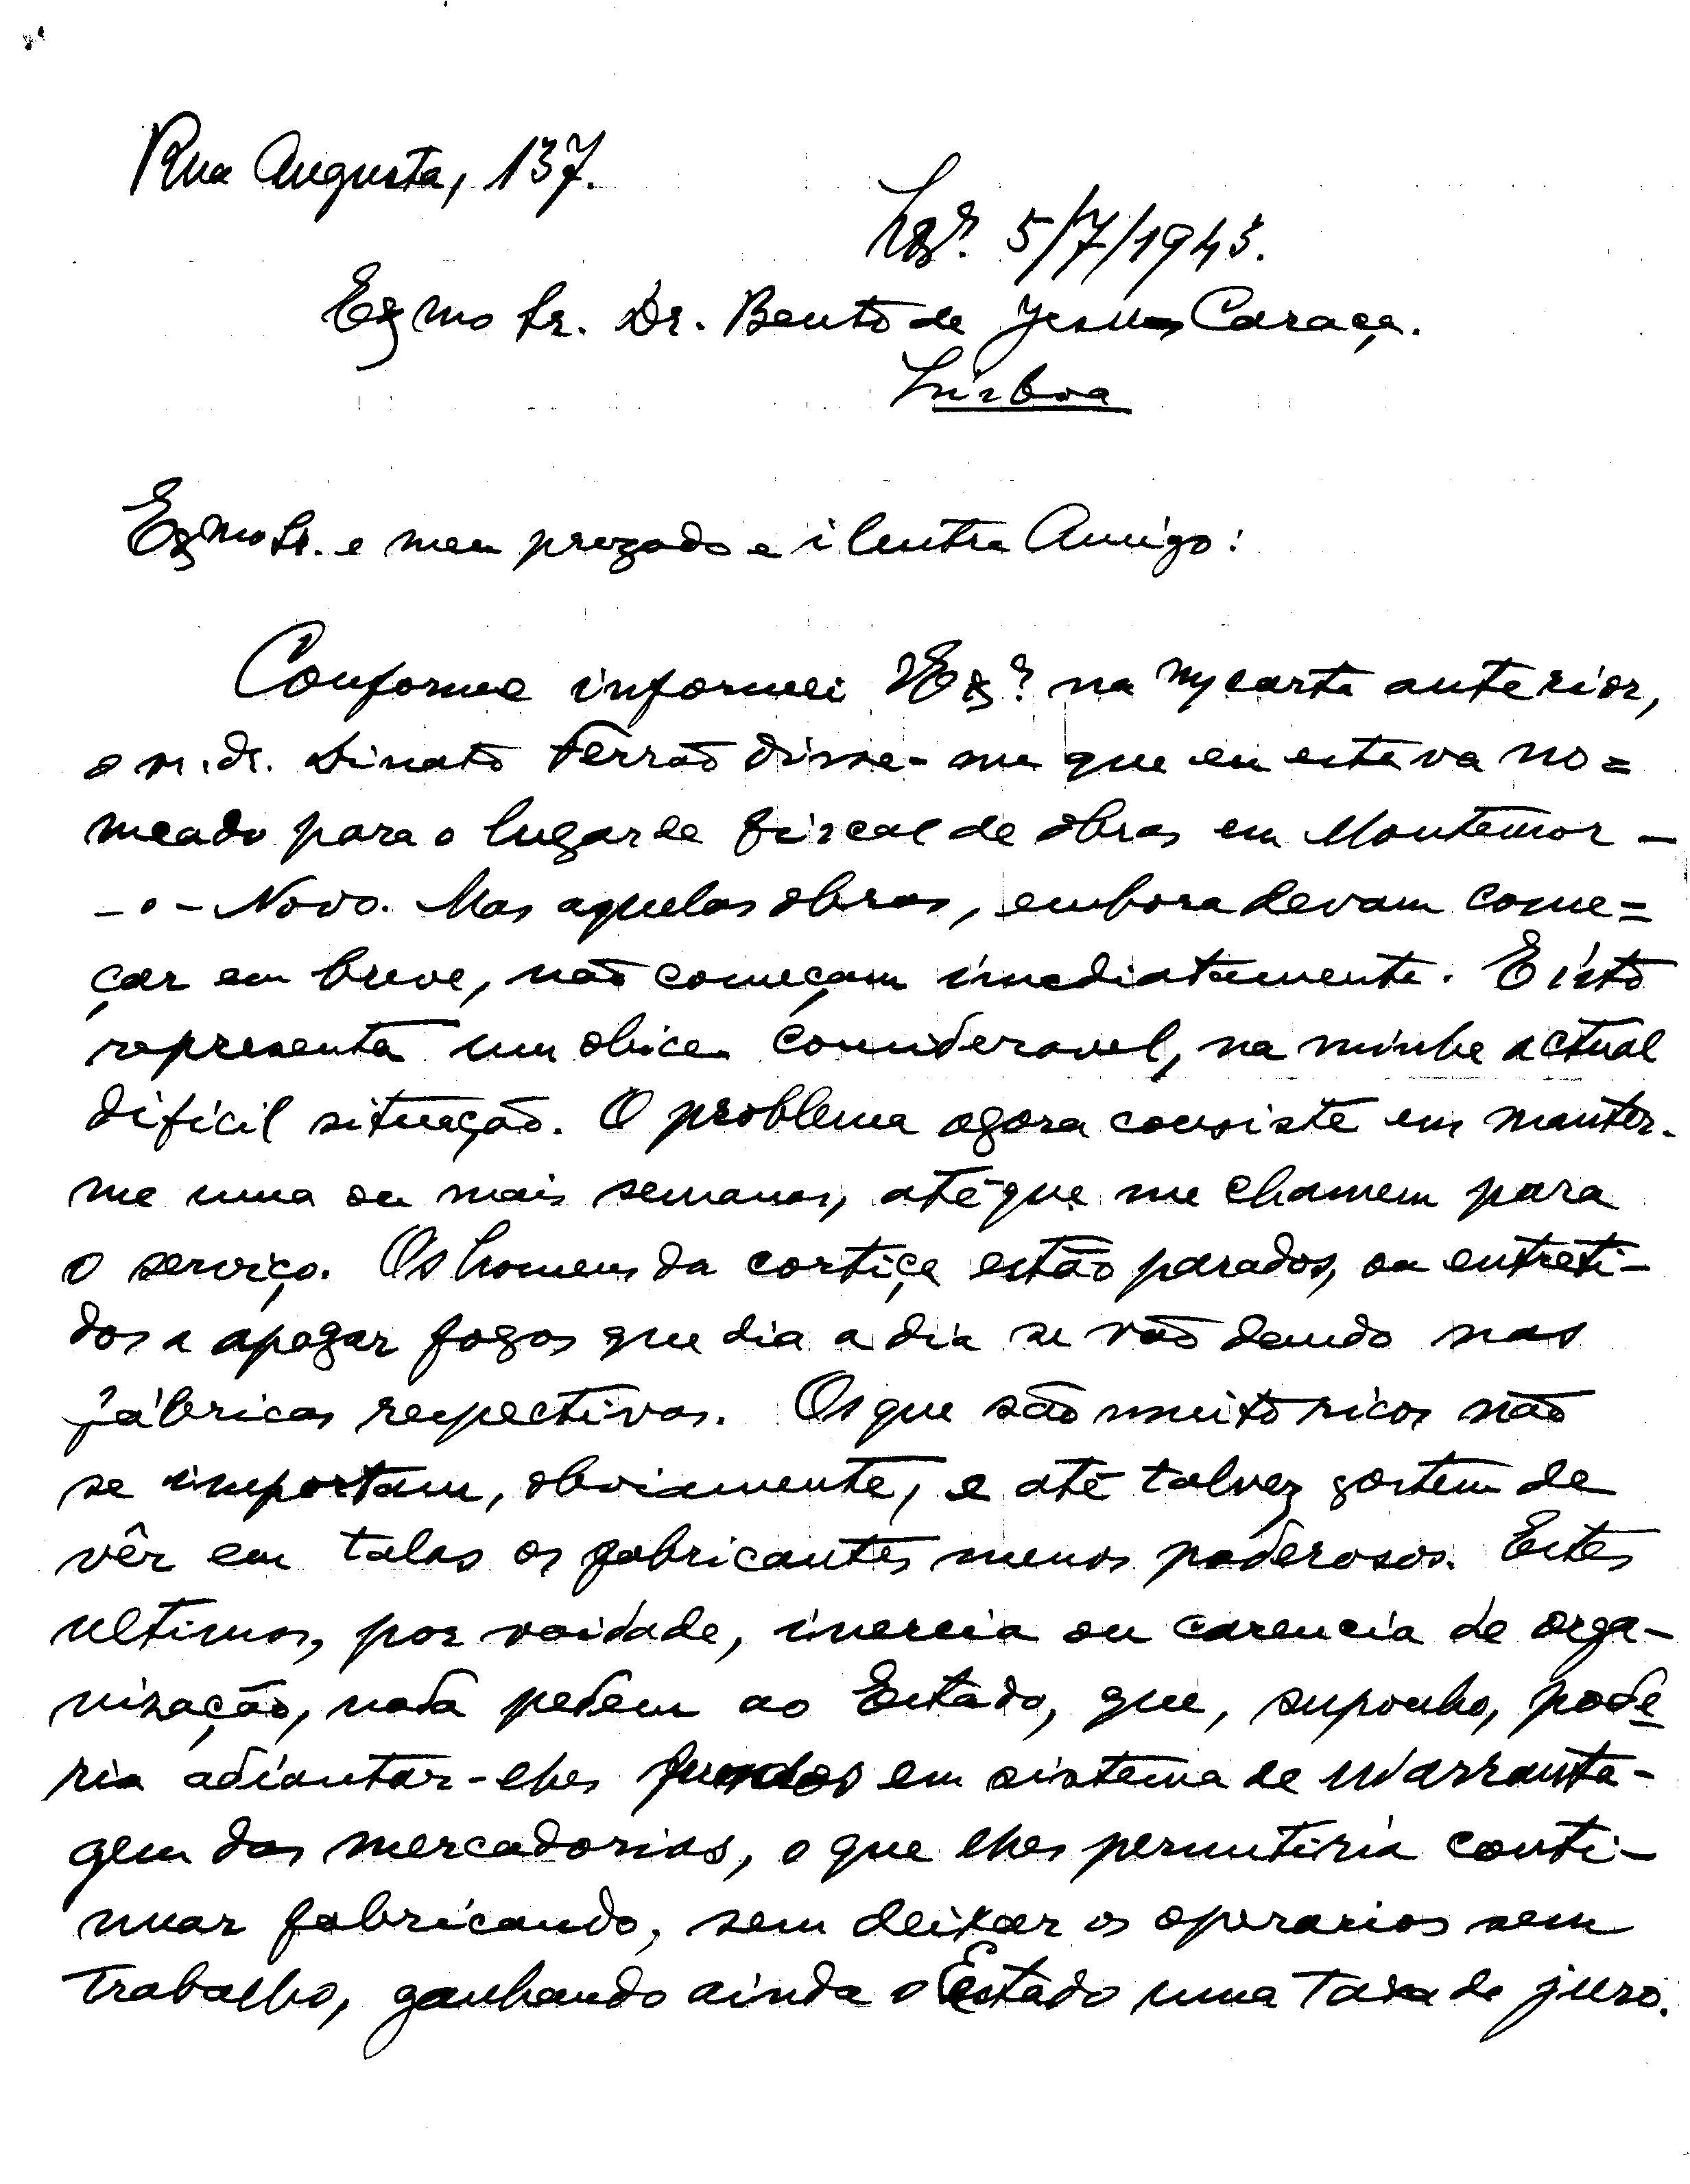 Rua Augusta, 137.
Lxª. 5/7/1943.
Exmo Sr. Dr. Bento de Jesus Caraça.
Lisboa
Exmo Sr. e meu prezado e ilustre Amigo:
Conforme informei VExª. na m/carta anterior,
o sr. dr. Dinato Ferrão disse-me que eu estava no=
meado para o lugar de fiscal de obras em Montemor -
- o - Novo. Mas aquelas obras, embora devam come=
çar em breve, não começam imediatamente. E isto
representa um obice consideravel, na minha actual
dificil situação. O problema agora consiste em manter-
me uma ou mais semanas, até que me chamem para
o serviço. Os homens da cortiça estão parados, ou entreti-
dos a apagar fogos que dia a dia se vão dando nas
fábricas respectivas. Os que são muito ricos não
se importam, obviamente, e até talvez gostem de
vêr em talas os fabricantes menos poderosos. Estes
ultimos, por vaidade, inercia ou carencia de orga-
nização, nada pedem ao Estado, que, suponho, pode
ria adiantar-lhes fundos em sistema de warranta-
gem das mercadorias, o que lhes permitiria conti-
nuar fabricando, sem deixar os operarios sem
trabalho, ganhando ainda o Estado uma taxa de juro.